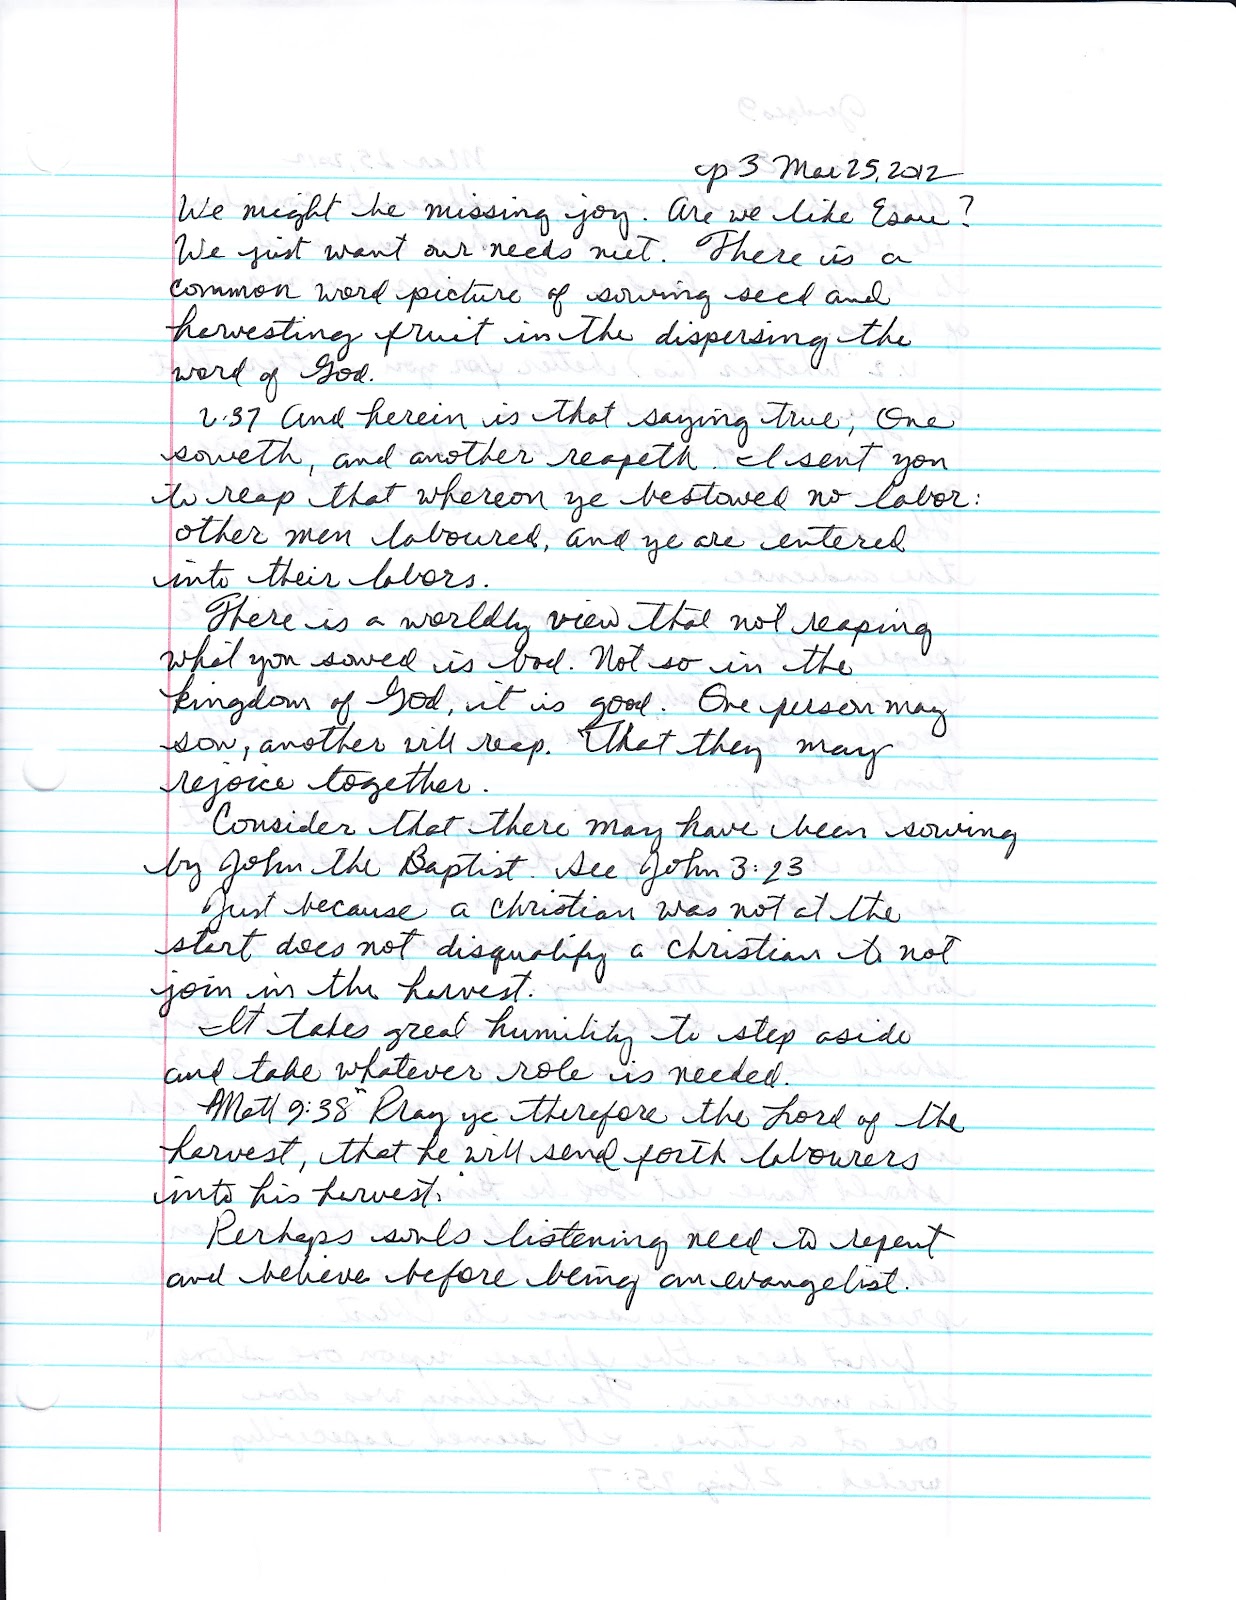 p 3 Mar 25, 2012
We might be missing joy. Are we like Esau?
We just want our needs met. There is a
common word picture of sowing seed and
harvesting fruit in the dispersing the
word of God.
v.37 And herein is that saying true; One
soweth, and another reapeth. I sent you
to reap that whereon ye bestowed no labor:
other men laboured, and ye are entered
into their labors.
There is a worldly view that not reaping
what you sowed is bad. Not so in the
kingdom of God, it is good. One person may
sow, another will reap. "That they may
rejoice together.
Consider that there may have been sowing
by John the Baptist. See John 3:23
Just because a christian was not at the
start does not disqualify a christian to not
join in the harvest.
It takes great humility to step aside
and take whatever role is needed.
Matt 9:38 "Pray ye therefore the Lord of the
harvest, that he will send forth labourers
into his harvest."
Perhaps souls listening need to repent
and believe before being an evangelist.